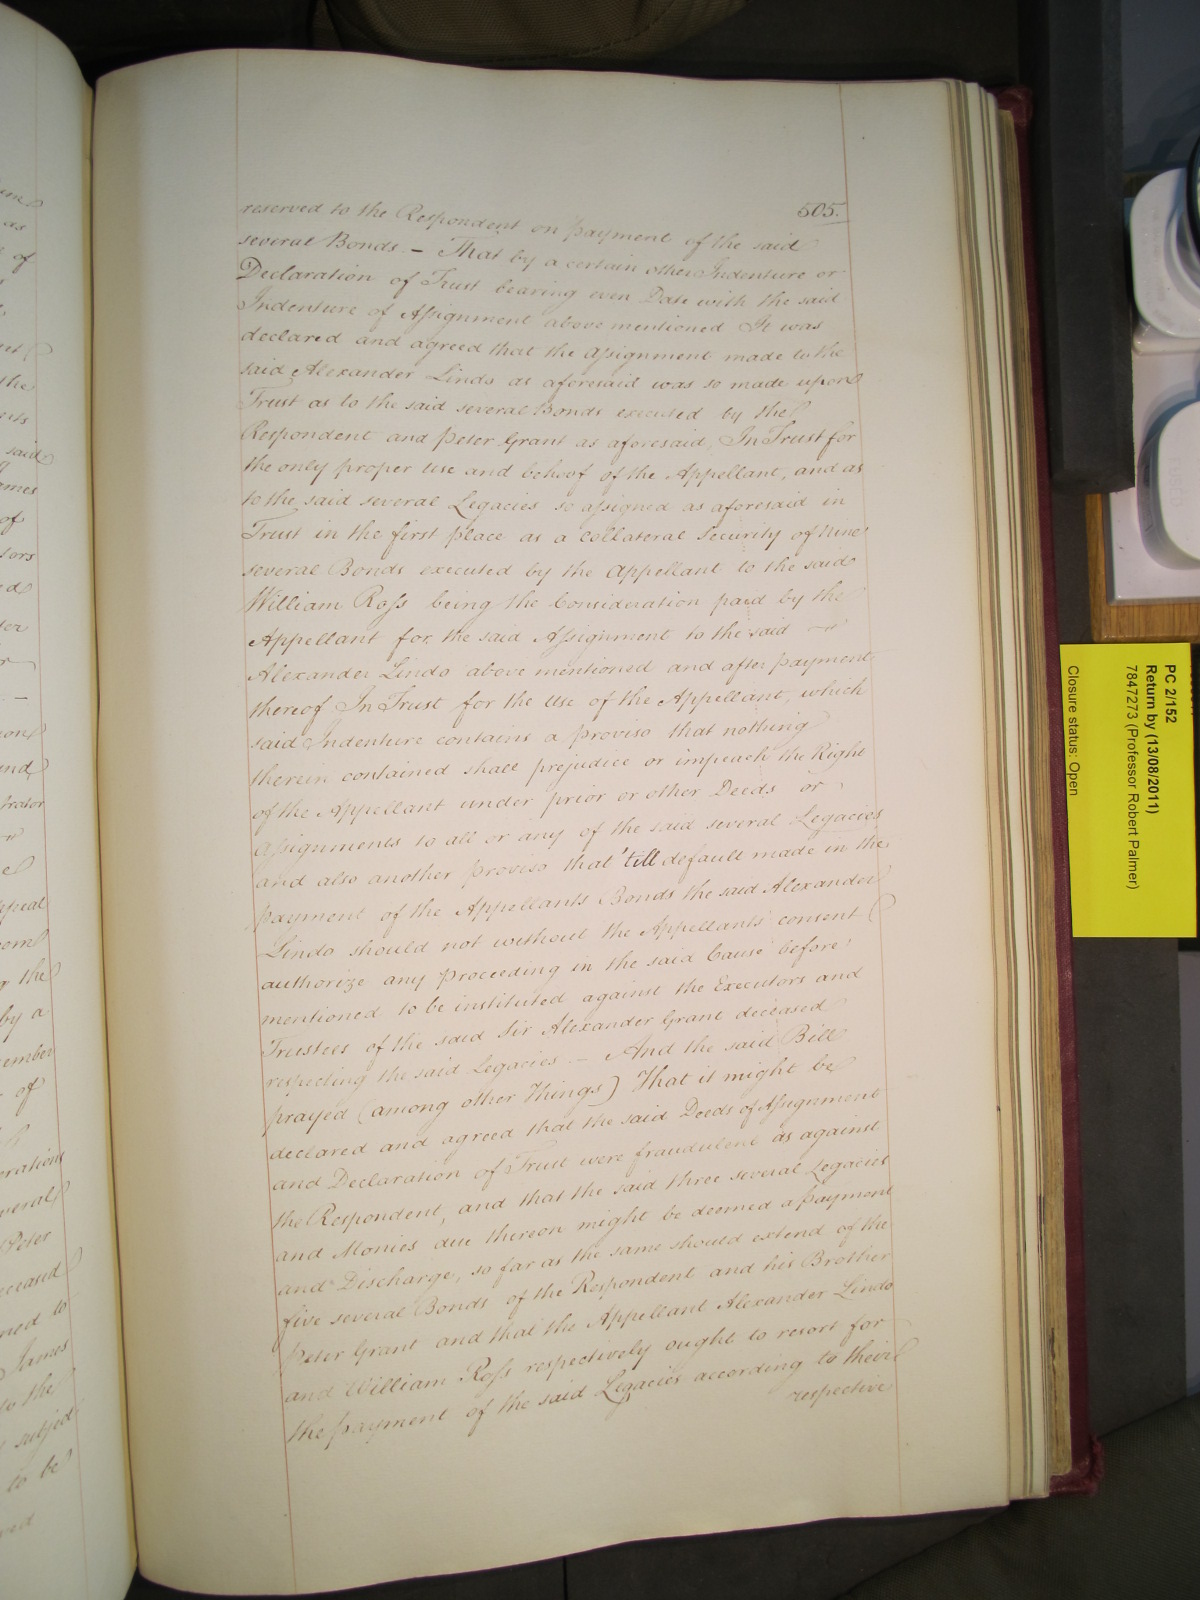 505.
reserved to the Respondent on payment of the said
several Bonds. – That by a certain other Indenture or
Declaration of Trust bearing even Date with the said
Indenture of Assignment above mentioned It was
declared and agreed that the Assignment made to the
said Alexander Lindo as aforesaid was so made upon
Trust as to the said several Bonds executed by the
Respondent and Peter Grant as aforesaid, In Trust for
the only proper use and behoof of the Appellant, and as
to the said several Legacies so assigned as aforesaid in
Trust in the first place as a collateral Security of nine
several Bonds executed by the Appellant to the said
William Ross being the Consideration paid by the
Appellant for the said Assignment to the said
Alexander Lindo above mentioned and after payment
thereof In Trust for the Use of the Appellant, which
said Indenture contains a proviso that nothing
therein contained shall prejudice or impeach the Right
of the Appellant under prior or other Deeds or
Assignments to all or any of the said several Legacies
and also another proviso that 'till default made in the
payment of the Appellants Bonds the said Alexander
Lindo should not without the Appellants consent
authorize any proceeding in the said Cause before
mentioned to be instituted against the Executors and
Trustees of the said Sir Alexander Grant deceased
respecting the said Legacies – And the said Bill
prayed (among other Things) That it might be
declared and agreed that the said Deeds of Assignment
and Declaration of Trust were fraudulent as against
the Respondent, and that the said three several Legacies
and Monies due thereon might be deemed a payment
and Discharge, so far as the same should extend of the
five several Bonds of the Respondent and his Brother
Peter Grant and that the Appellant Alexander Lindo
and William Ross respectively ought to resort for
the payment of the said Legacies according to their
respective
PC 2/152
Return by (13/08/2011)
7847273 (Professor Robert Palmer)
Closure status: Open
as
of
the
said
of
the
by a
of
Peter
deceased
James
to the
subject
to be